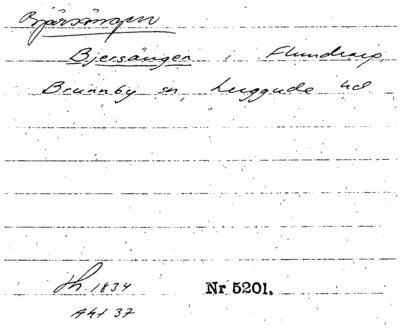 Bjärsängen
Bjersängen i Flundrarp,
Brunnby sn, Luggude hd
1834
Nr 5201.
Akt 37